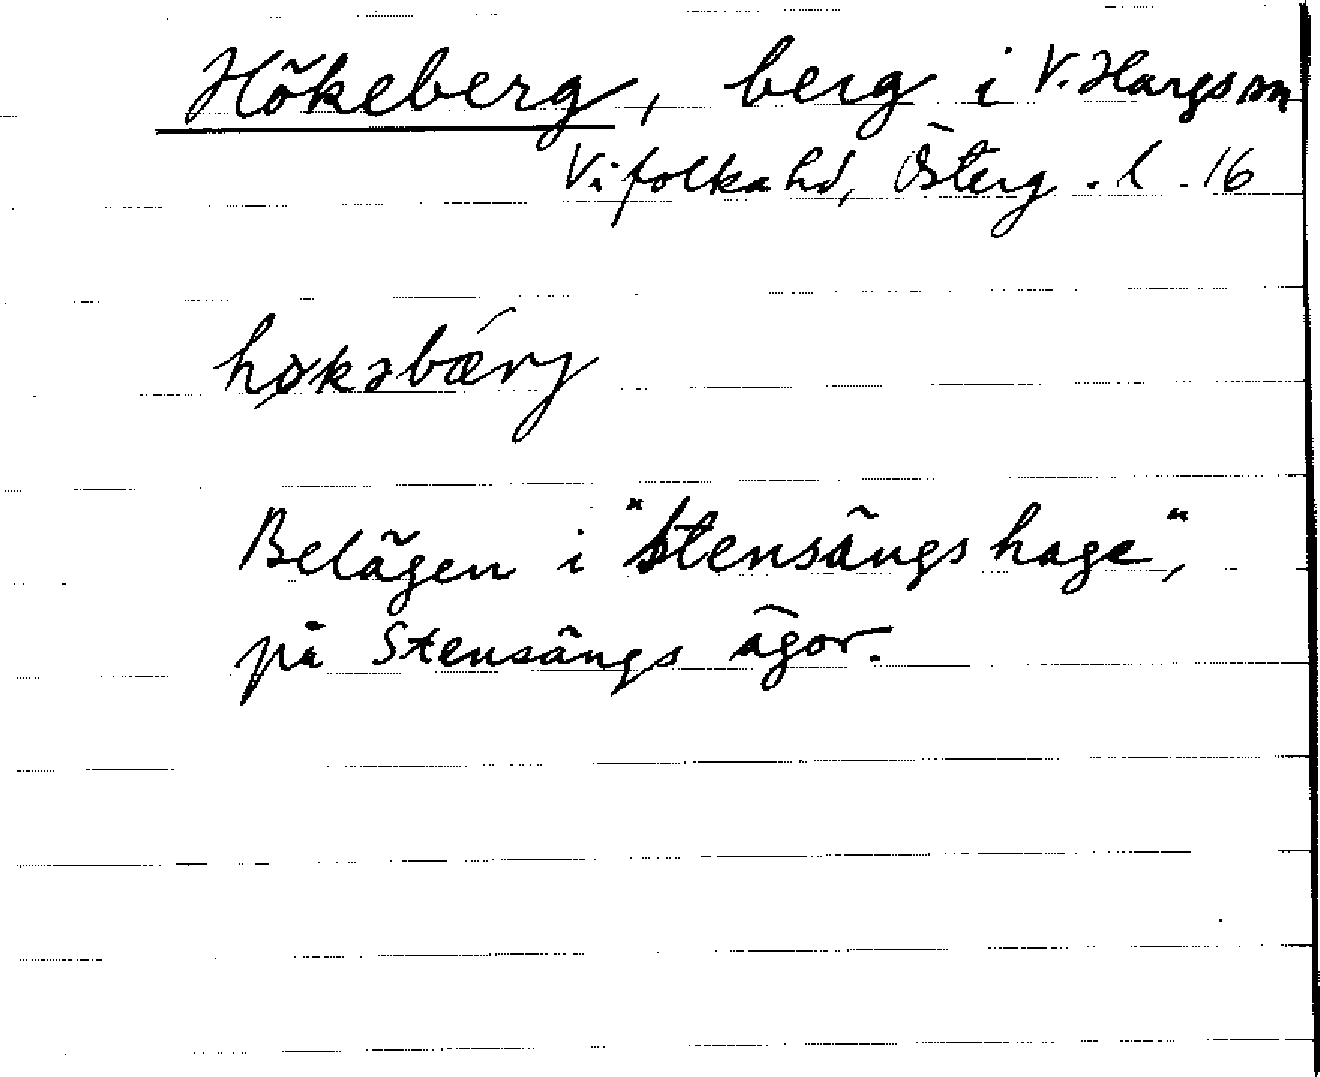 Hökeberg, berg i V. Hargs sn
Vifolka hd, Österg. l. 16
høkəbǽrj
Belägen i "Stensängs hage",
på Stensängs ägor.